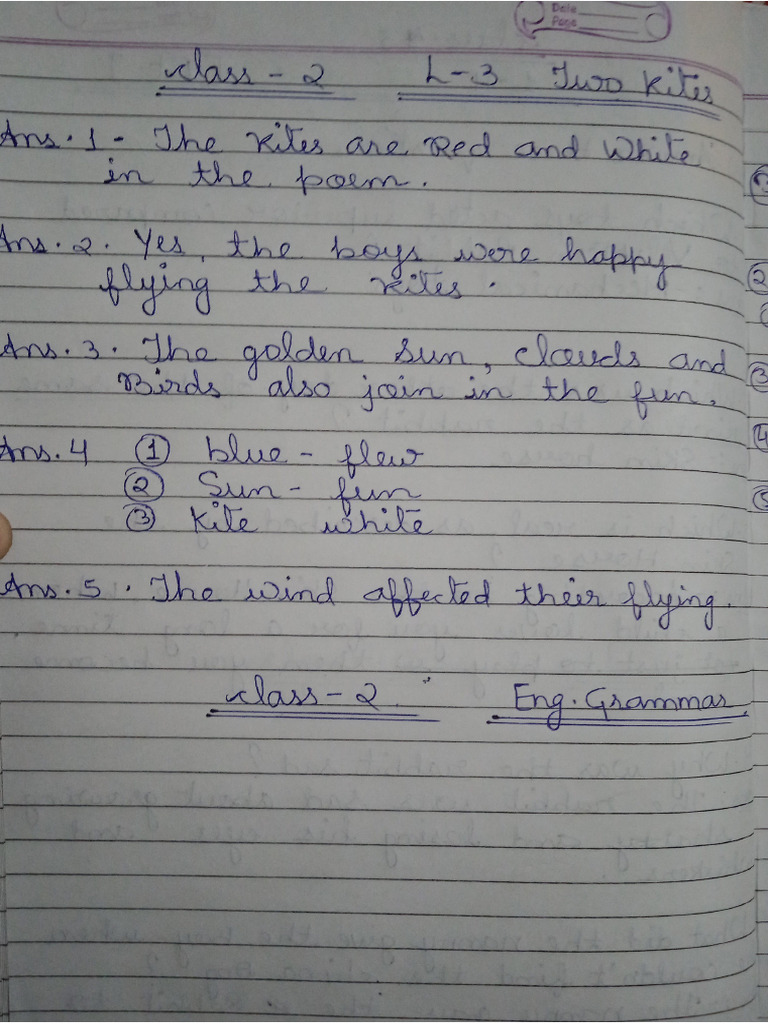 Date
Page
Class - 2 L-3 Two Kites
Ans. 1 - The Kites are Red and White
in the poem.
Ans. 2. Yes, the boys were happy
flying the Kites.
Ans. 3. The golden Sun, Clouds and
Birds also join in the fun.
Ans. 4 ① blue - flew
② Sun - fun
③ Kite white
Ans. 5. The wind affected their flying.
Class - 2 Eng. Grammar
②
③
④
⑤